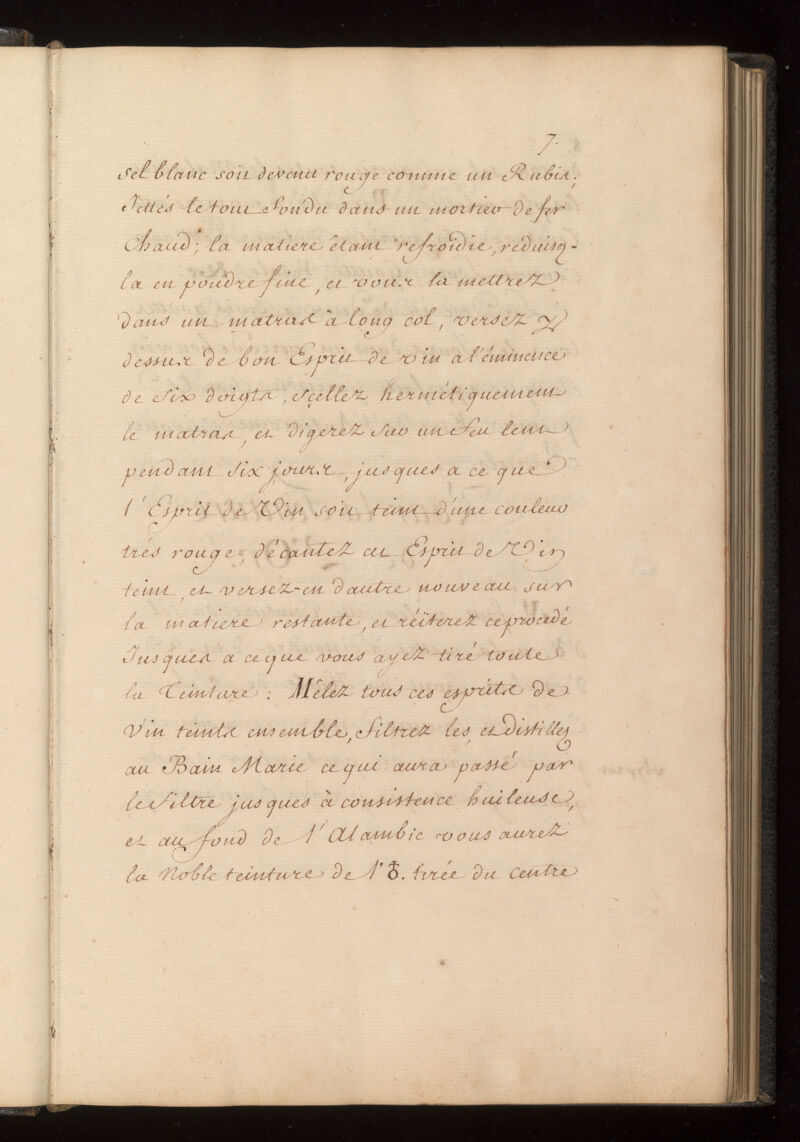 7.
sel blanc soit devenu rouge comme un Rubis;
Jettés le tout fondu dans un mortier de fer
chaud; la matiere étant refroidie, réduisez-
la en poudre fine, et vous la mettrez
dans un matras à long col, versez
dessus de bon Esprit de vin a l'éminence
de six doigts, scellez hermétiquement
le matras, et digerez sur un feu lent
pendant six jours, jusques a ce que
l'Esprit de Vin soit teint d'une couleur
très rouge, décantez cet Esprit de Vin
teint, et versez-en d'autre nouveau sur
la matiere restante, et réïterez ce procedé
Jusques a ce que vous ayez tiré toute
la Teinture: Mêlez tous ces esprits de
Vin teints ensemble, filtrez les, et distillez
au Bain Marie ce qui aura passé par
le filtre jusques à consistence huileuse,
et au fond de l'Alambic vous aurez
la Noble teinture de l'♁. tirée du centre